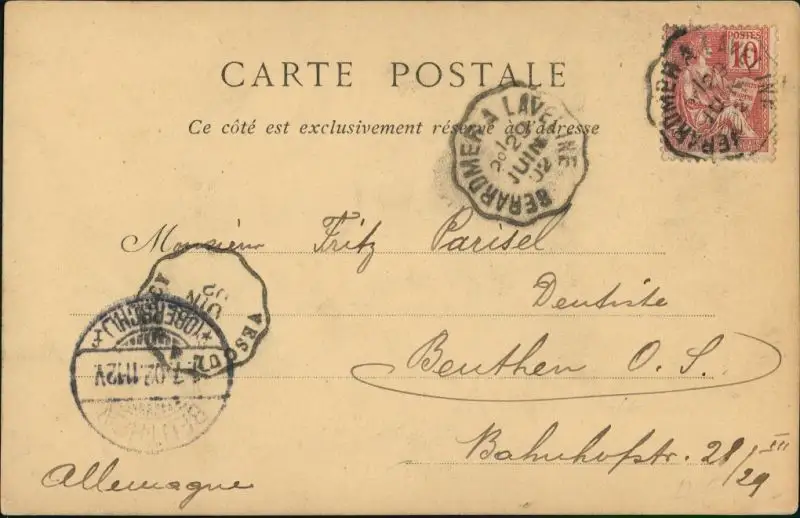 POSTES
10
CARTE POSTALE
Ce côté est exclusivement réservé à l'adresse
GÉRARDMER A LAVELINE
2º
29
JUIN
02
Monsieur Fritz Parisel
Dentiste
Beuthen O. S.
Bahnhofstr. 28/29 III
Allemagne
VESOUL
JUIN
02
BEUTHEN
*(OBERSCHL.)*
7.02.11-12V.